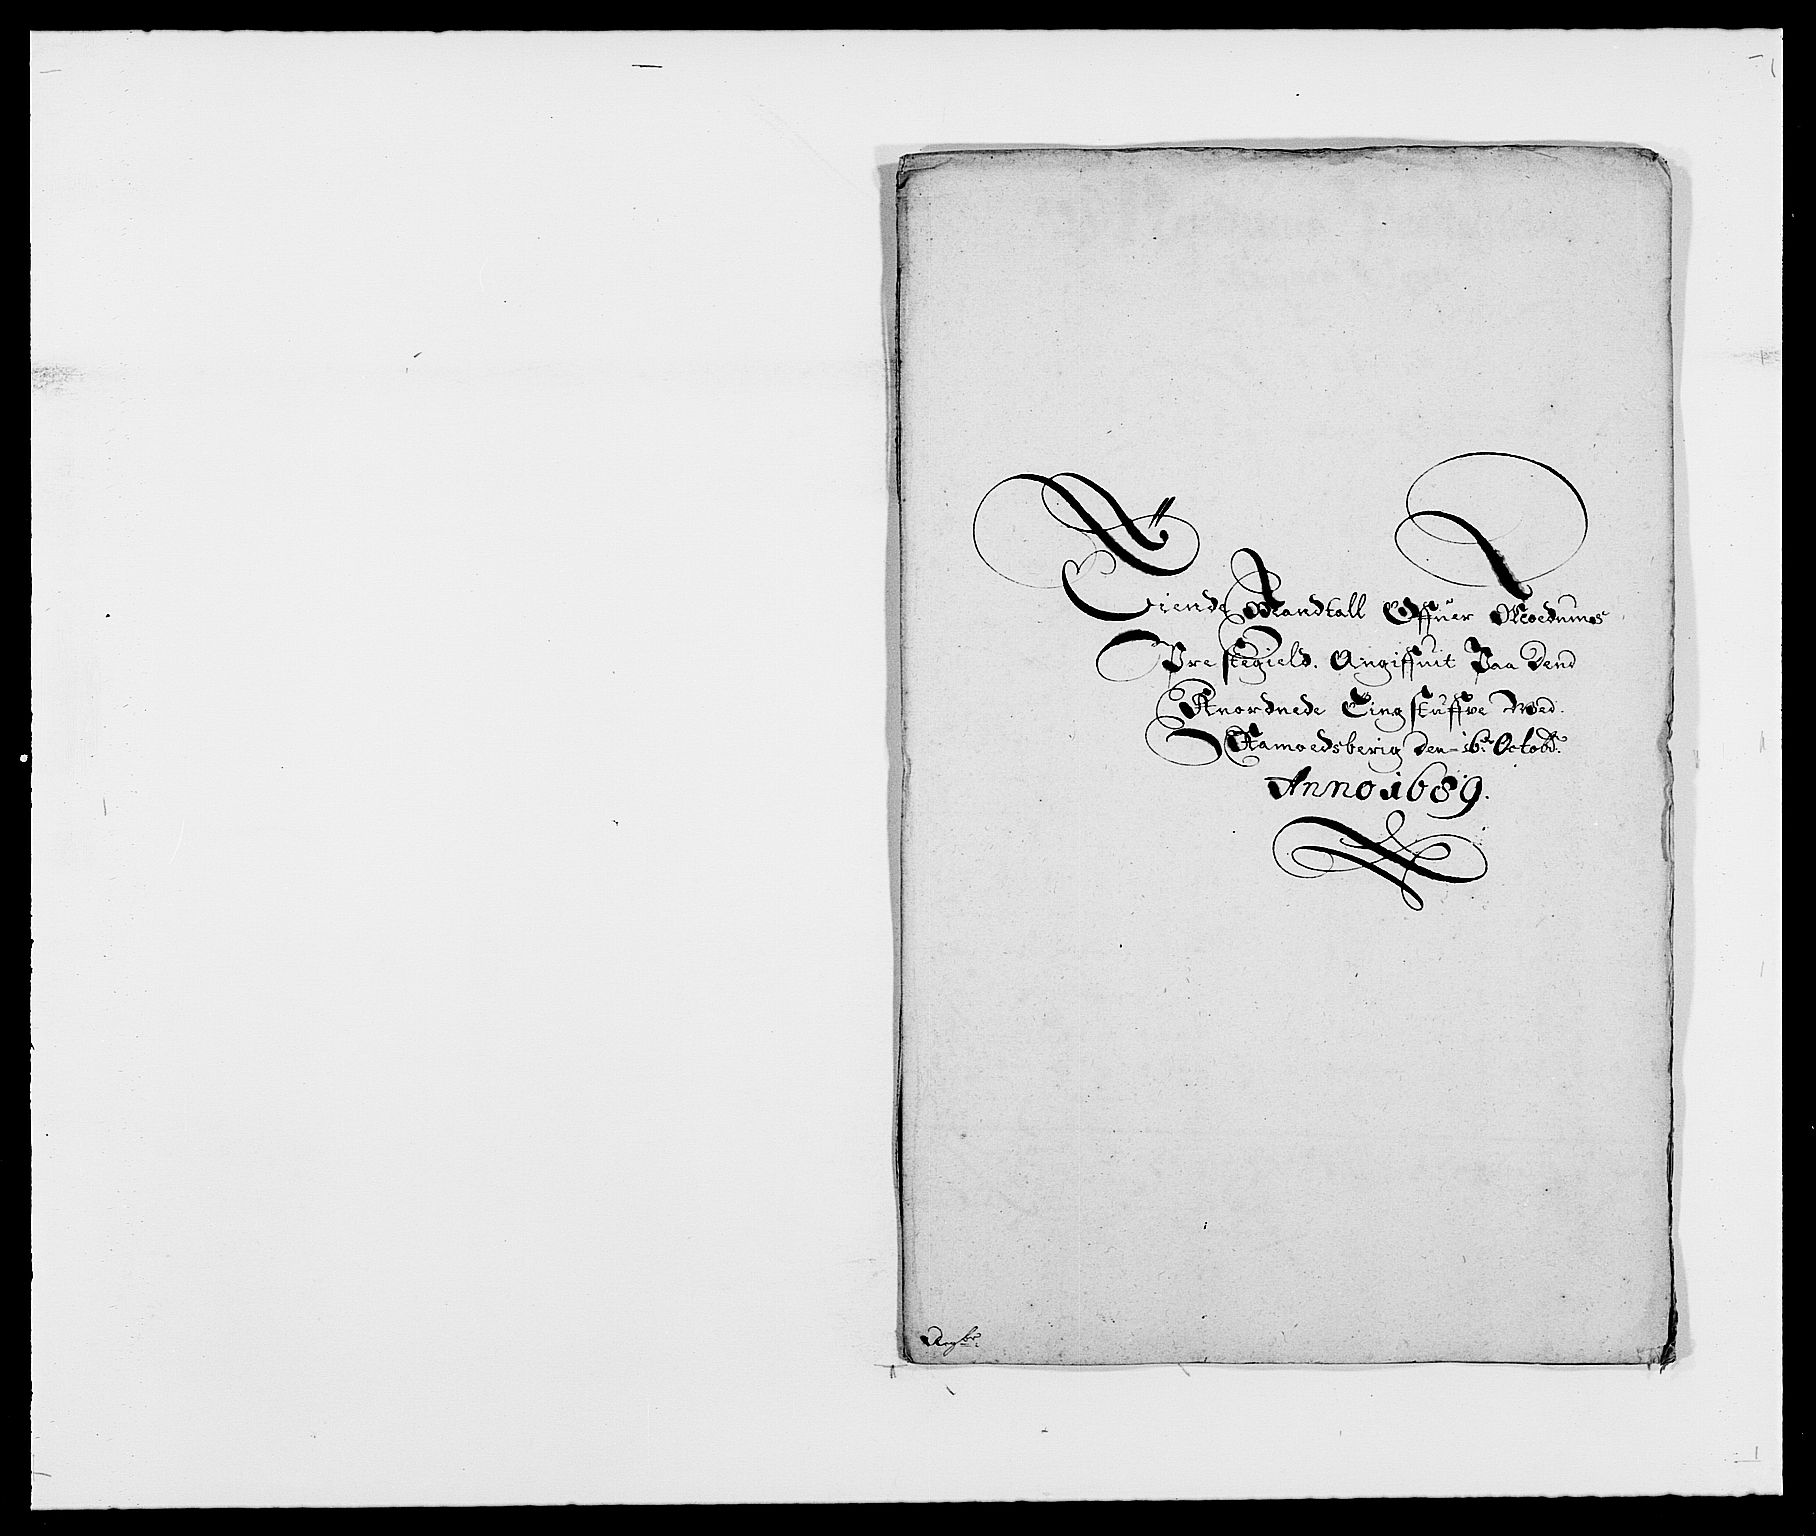 Tiende Mandtall Offuer Moedumbs
Prestegield. Angiffuit Paa Dend
Anordnede Tingstuffve Wed.
Ramoedsberig den 16: Octobr.
Anno 1689.